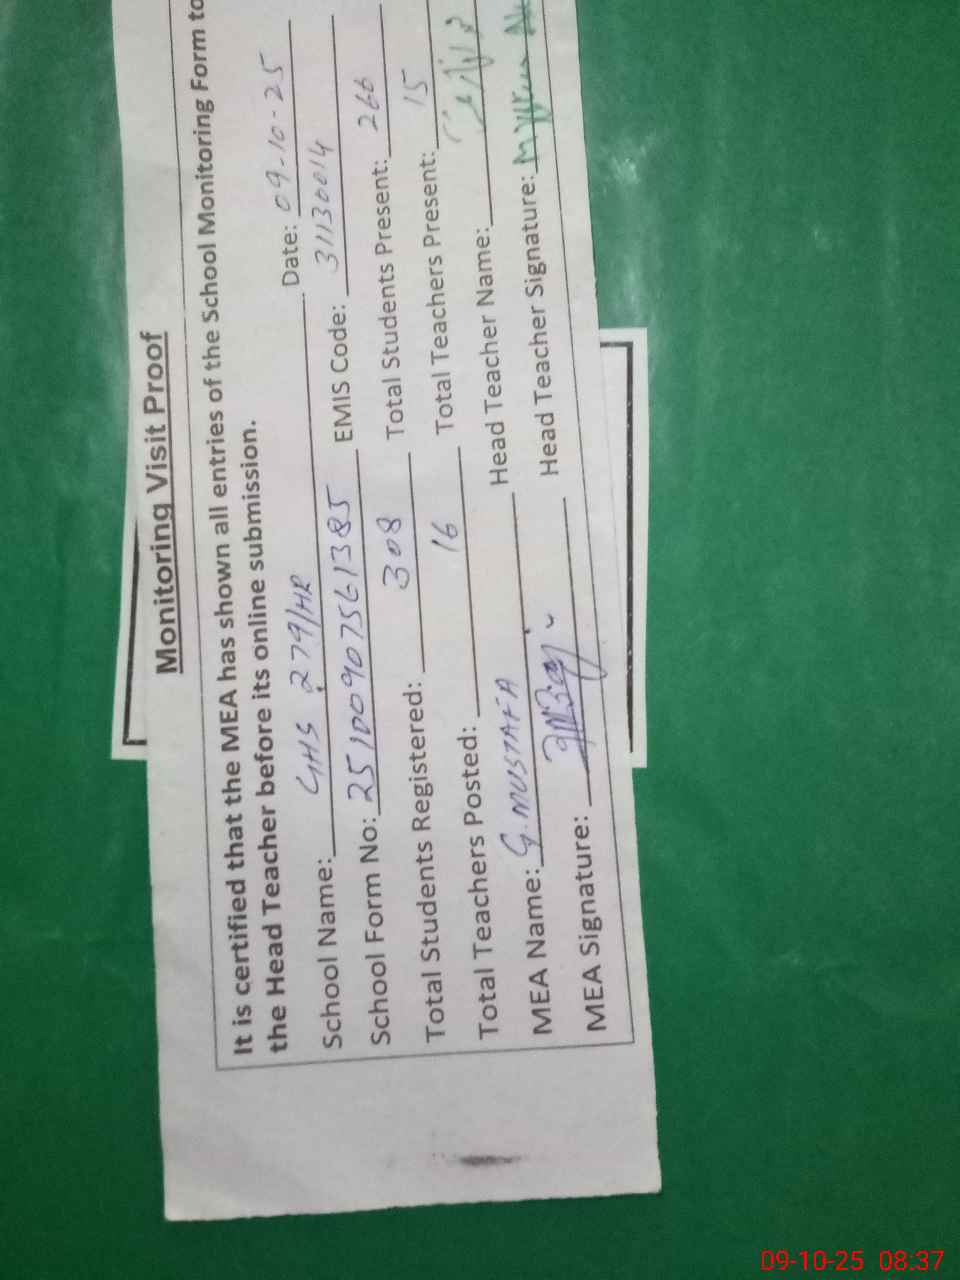 Monitoring Visit Proof
It is certified that the MEA has shown all entries of the School Monitoring Form to
the Head Teacher before its online submission.
School Name: GHS 279/HR Date: 09-10-25
School Form No: 25100907561385 EMIS Code: 31130014
Total Students Registered: 308 Total Students Present: 266
Total Teachers Posted: 16 Total Teachers Present: 15
MEA Name: G. MUSTAFA Head Teacher Name:
MEA Signature: Head Teacher Signature:
09-10-25 08:37